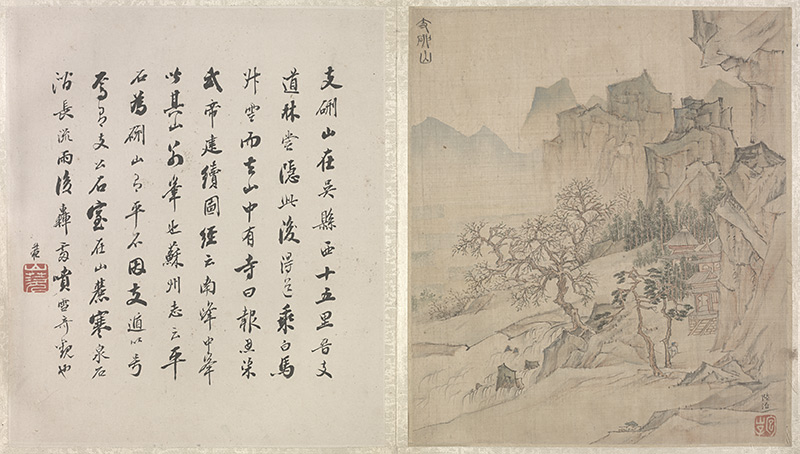 支硎山在吳縣西十五里晉支
道林嘗隱此後得道乘白馬
升雲而去山中有寺曰報恩梁
武帝建續圖經云南峰中峰
皆其山別峯也蘇州志云平
石為硎山有平石因支遁以号
焉有支公石室在山麓寒泉石
澗長流雨後轟雷噴雪奇觀也
支硎山
陸治